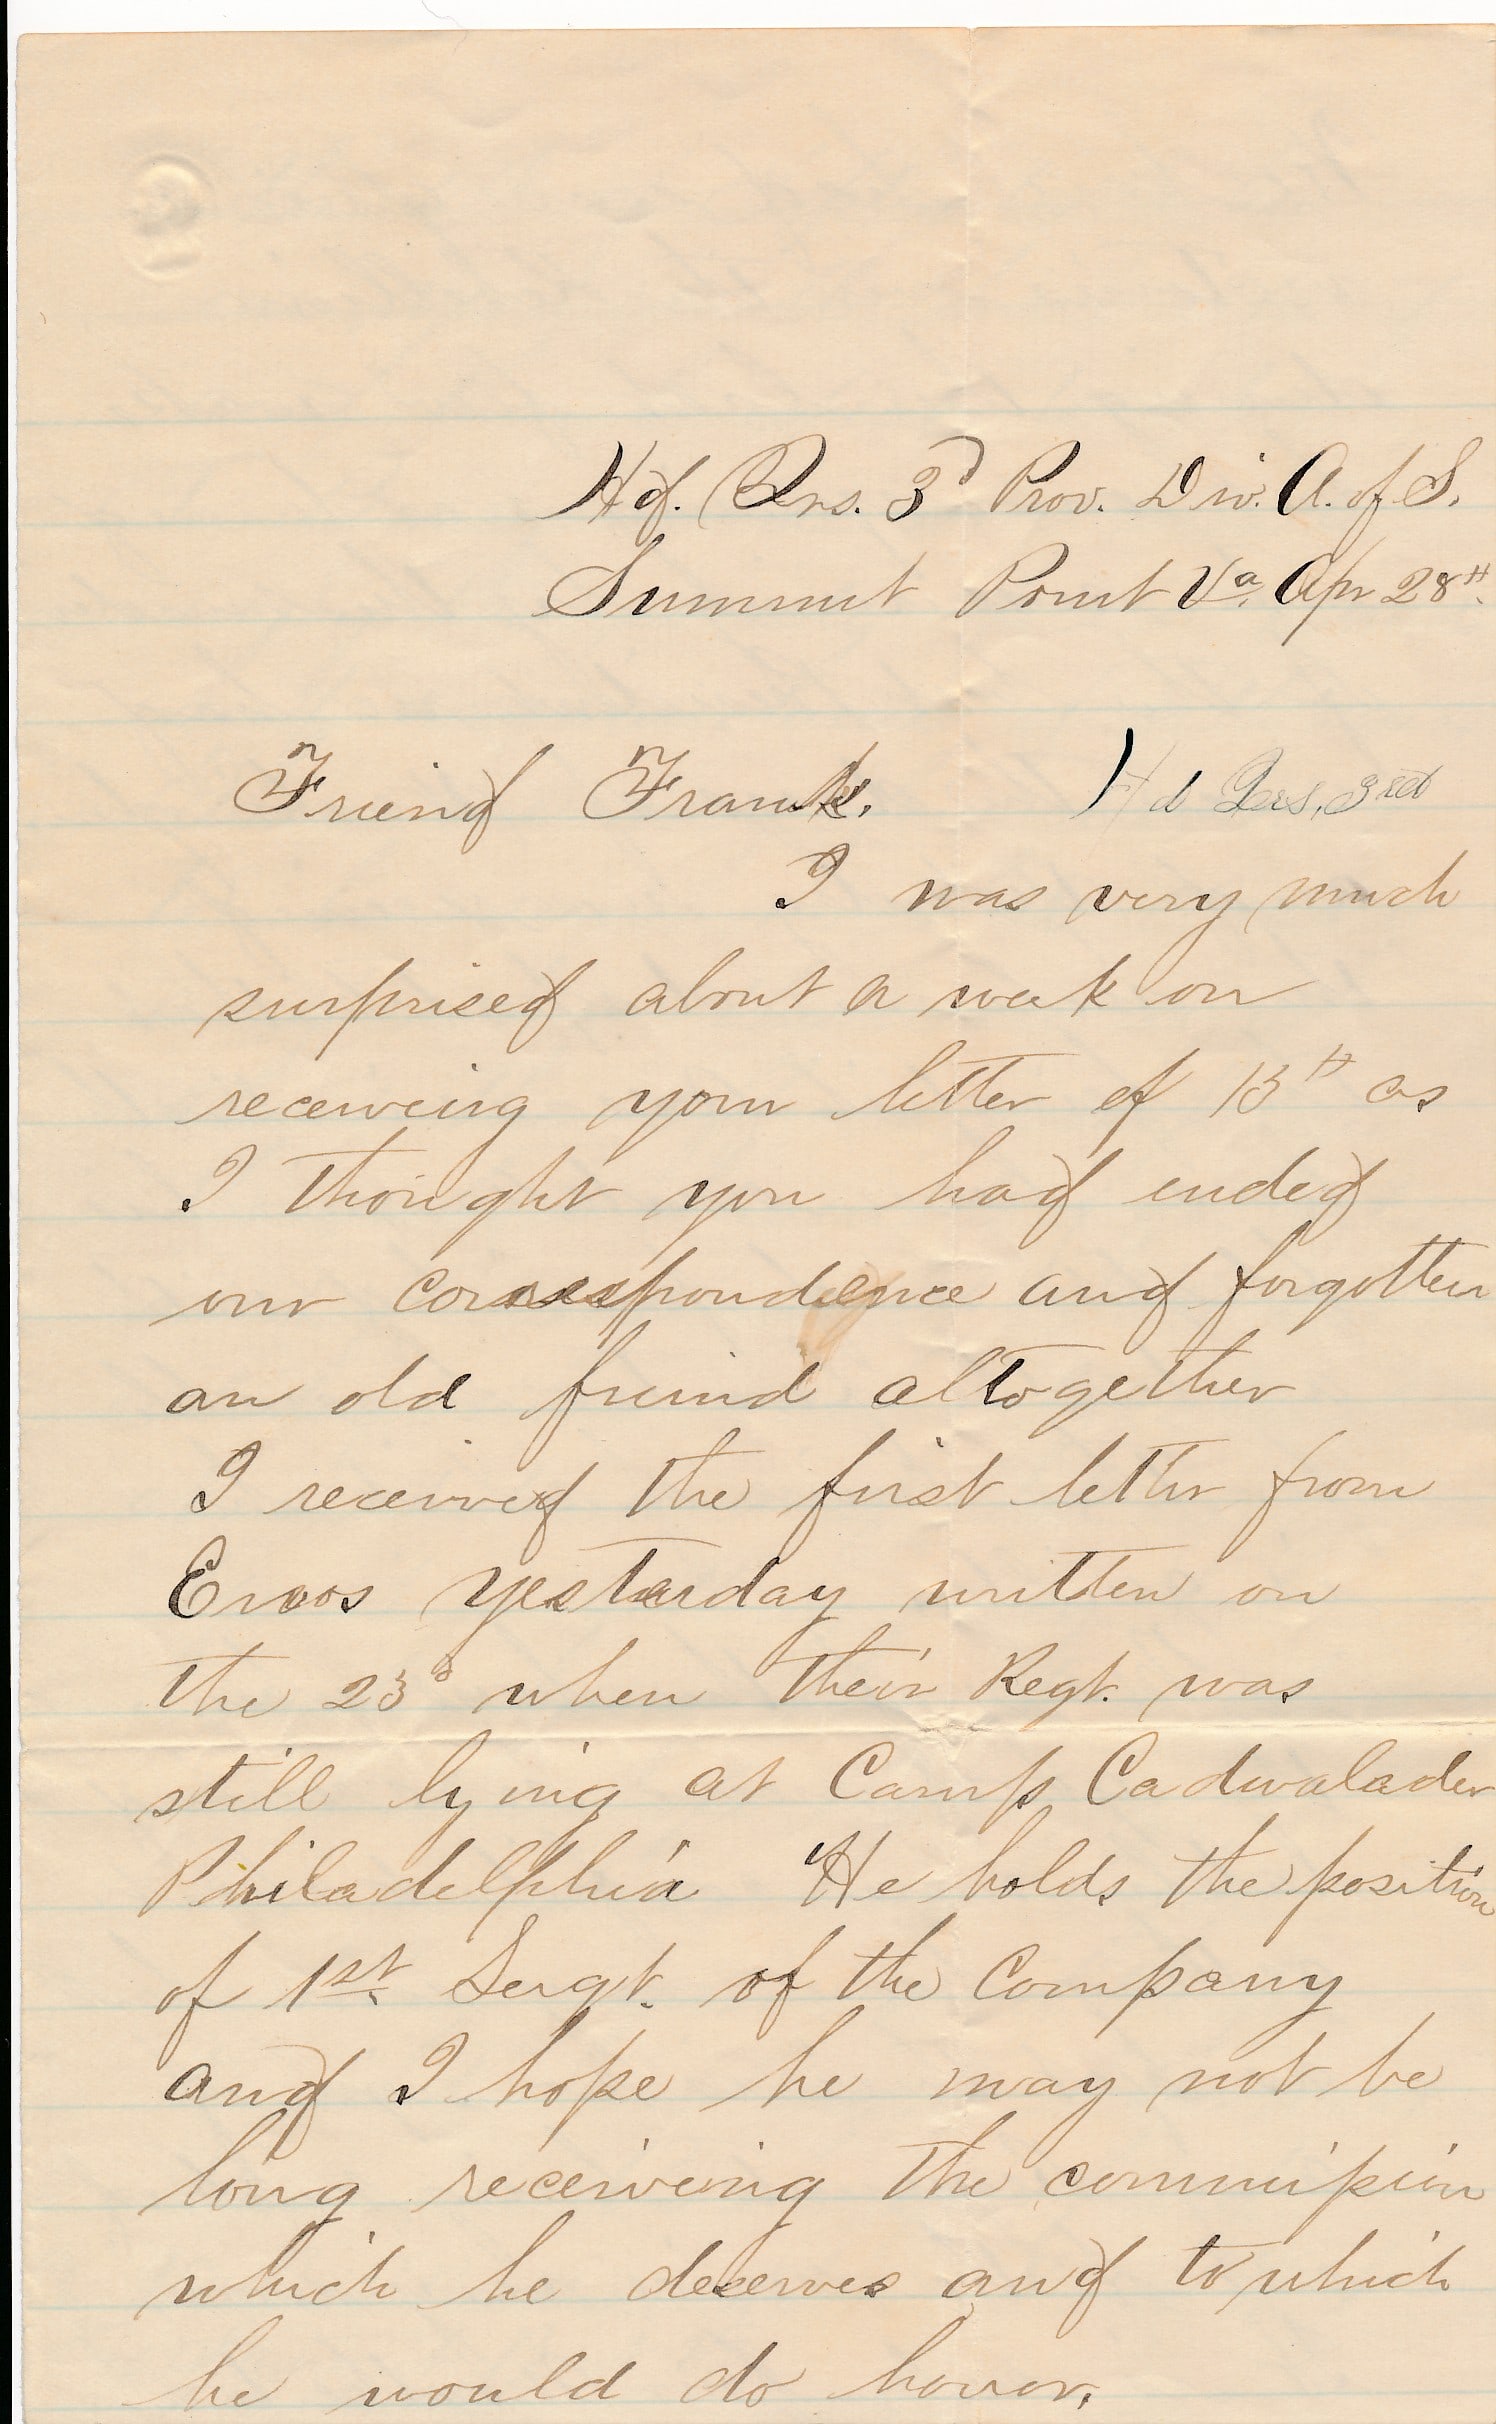 Hd. Qrs. 3d Prov. Div. A. of S.
Summit Point Va. Apr 28th.
Friend Frank. Hd Qrs, 3rd
I was very much
surprised about a week on
receiving your letter of 13th as
I thought you had ended
our correspondence and forgotten
an old friend altogether
I received the first letter from
yesterday written on
the 23d when their Regt. was
still lying at Camp Cadwalader
Philadelphia He holds the position
of 1st. Sergt. of the Company
and I hope he may not be
long receiving the commission
which he deserves and to which
he would do honor.